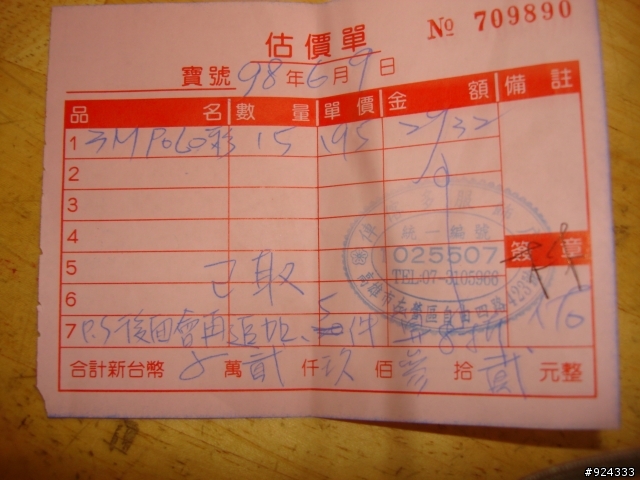 估價單
№ 709890
寶號 98年6月9日
品名 數量 單價 金額 備註
1 3M POLO彩 15 195 2932
2
3
4
統一編號
025507
簽章
5 已取
TEL:07-3105966
6
7 P.S 後面會再追加、5件
合計新台幣 萬貳仟玖佰參拾貳元整
#924333